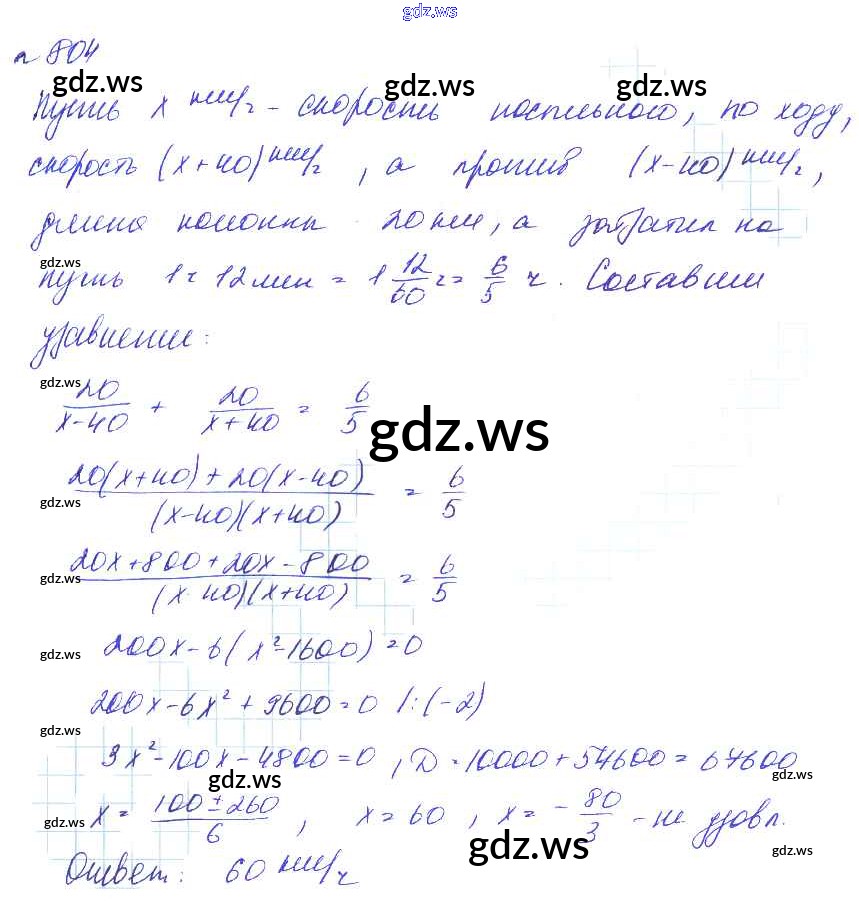 gdz.ws
n 804
gdz.ws gdz.ws gdz.ws
Пусть x км/ч - скорость посыльного, по ходу,
скорость (x+40) км/ч, а против (x-40) км/ч,
длина колонны 20 км, а затратил на
gdz.ws
путь 1ч 12 мин = 1 12/60 ч = 6/5 ч. Составим
уравнение:
gdz.ws
20/(x-40) + 20/(x+40) = 6/5
gdz.ws
(20(x+40)+20(x-40))/((x-40)(x+40)) = 6/5
gdz.ws
(20x+800+20x-800)/((x-40)(x+40)) = 6/5
gdz.ws
200x-6(x²-1600)=0
gdz.ws
200x-6x²+9600=0 /:(-2)
gdz.ws
3x²-100x-4800=0, D=10000+57600=67600
gdz.ws gdz.ws
x = (100±260)/6, x=60, x=-80/3 - не удовл.
gdz.ws gdz.ws
Ответ: 60 км/ч